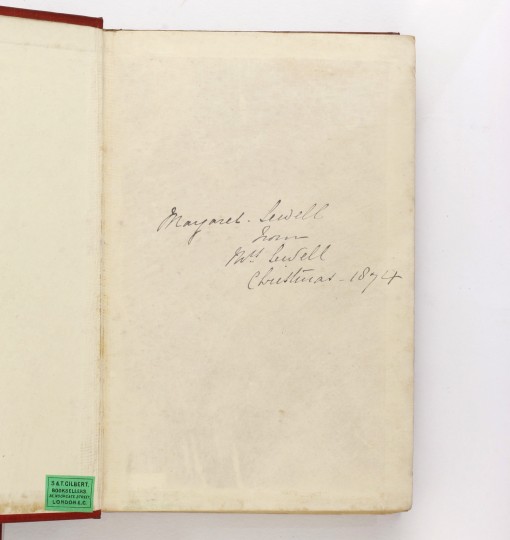 Margaret. Sewell
from
Mrs Sewell
Christmas - 1874
S & T. GILBERT.
BOOKSELLERS
LONDON E.C.